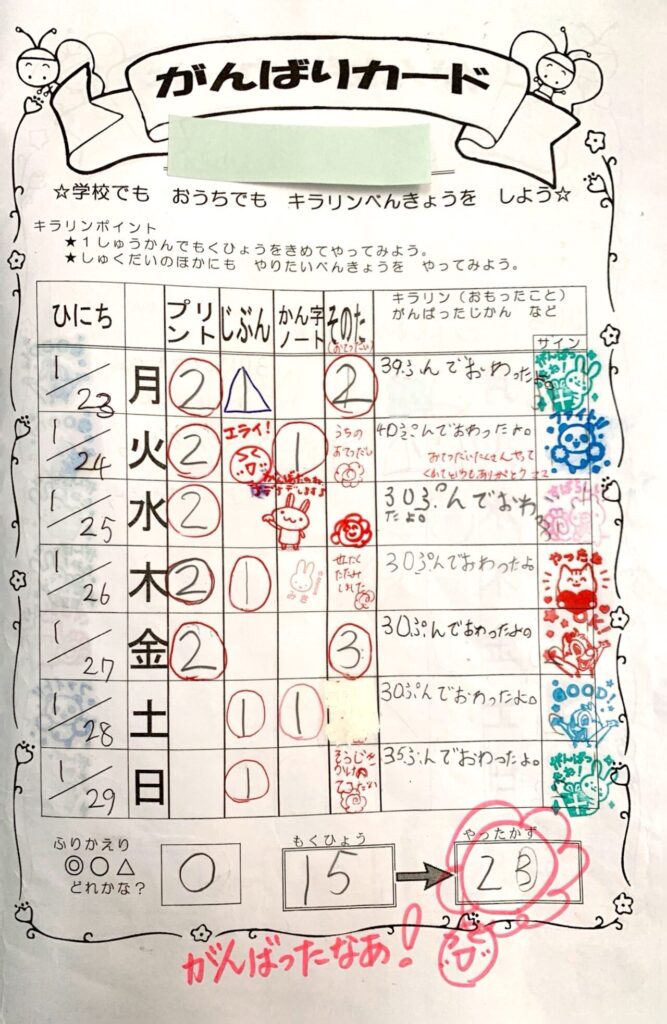 がんばりカード
☆学校でも おうちでも キラリンべんきょうを しよう☆
キラリンポイント
★1しゅうかんでもくひょうをきめてやってみよう。
★しゅくだいのほかにも やりたいべんきょうを やってみよう。
ひにち プリント じぶん かん字ノート そのた (おてつだい) キラリン（おもったこと）がんばったじかん など サイン
1/23 月 2 1 2 39ぷんでおわったよ。 がんばったね!
1/24 火 2 エライ! 1 うちのおてつだい 40ぷんでおわったよ。 ファイト
おてつだいたくさんやってくれていつもありがとう
1/25 水 2 30ぷんでおわったよ。
1/26 木 2 1 せんたくたたみしました 30ぷんでおわったよ やったね
1/27 金 2 3 30ぷんでおわったよの OK!
1/28 土 1 1 30ぷんでおわったよ。 GOOD!
1/29 日 1 35ぷんでおわったよ。 がんばったね!
ふりかえり
◎○△
どれかな？
○
もくひょう
15
やったかず
23
がんばったなあ!